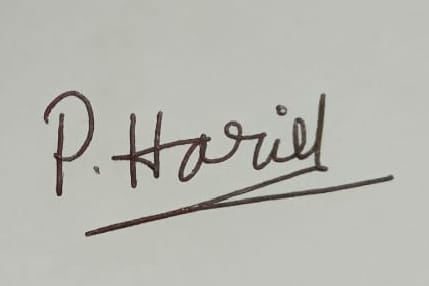 P. Hariel